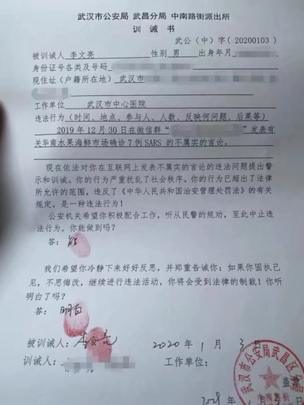 武汉市公安局 武昌分局 中南路街派出所
训 诫 书
武公(中)字(20200103)
被训诫人 李文亮 性别 男 出生年月
身份证件名称及号码
现住址(户籍所在地) 武汉市
工作单位 武汉市中心医院
违法行为(时间、地点、参与人、人数、反映何问题、后果等)
2019年12月30日在微信群" "发表有
关华南水果海鲜市场确诊7例SARS的不属实的言论。
现在依法对你在互联网上发表不属实的言论的违法问题提出警
示和训诫。你的行为严重扰乱了社会秩序。你的行为已超出了法律
所允许的范围,违反了《中华人民共和国治安管理处罚法》的有关
规定,是一种违法行为!
公安机关希望你积极配合工作,听从民警的规劝,至此中止违
法行为。你能做到吗?
答: 能
我们希望你冷静下来好好反思,并郑重告诫你:如果你固执己
见,不思悔改,继续进行违法活动,你将会受到法律的制裁!你听
明白了吗?
答: 明白
被训诫人: 李文亮 2020年1月3日
训诫人: 工作单位:
武汉市公安局武昌区